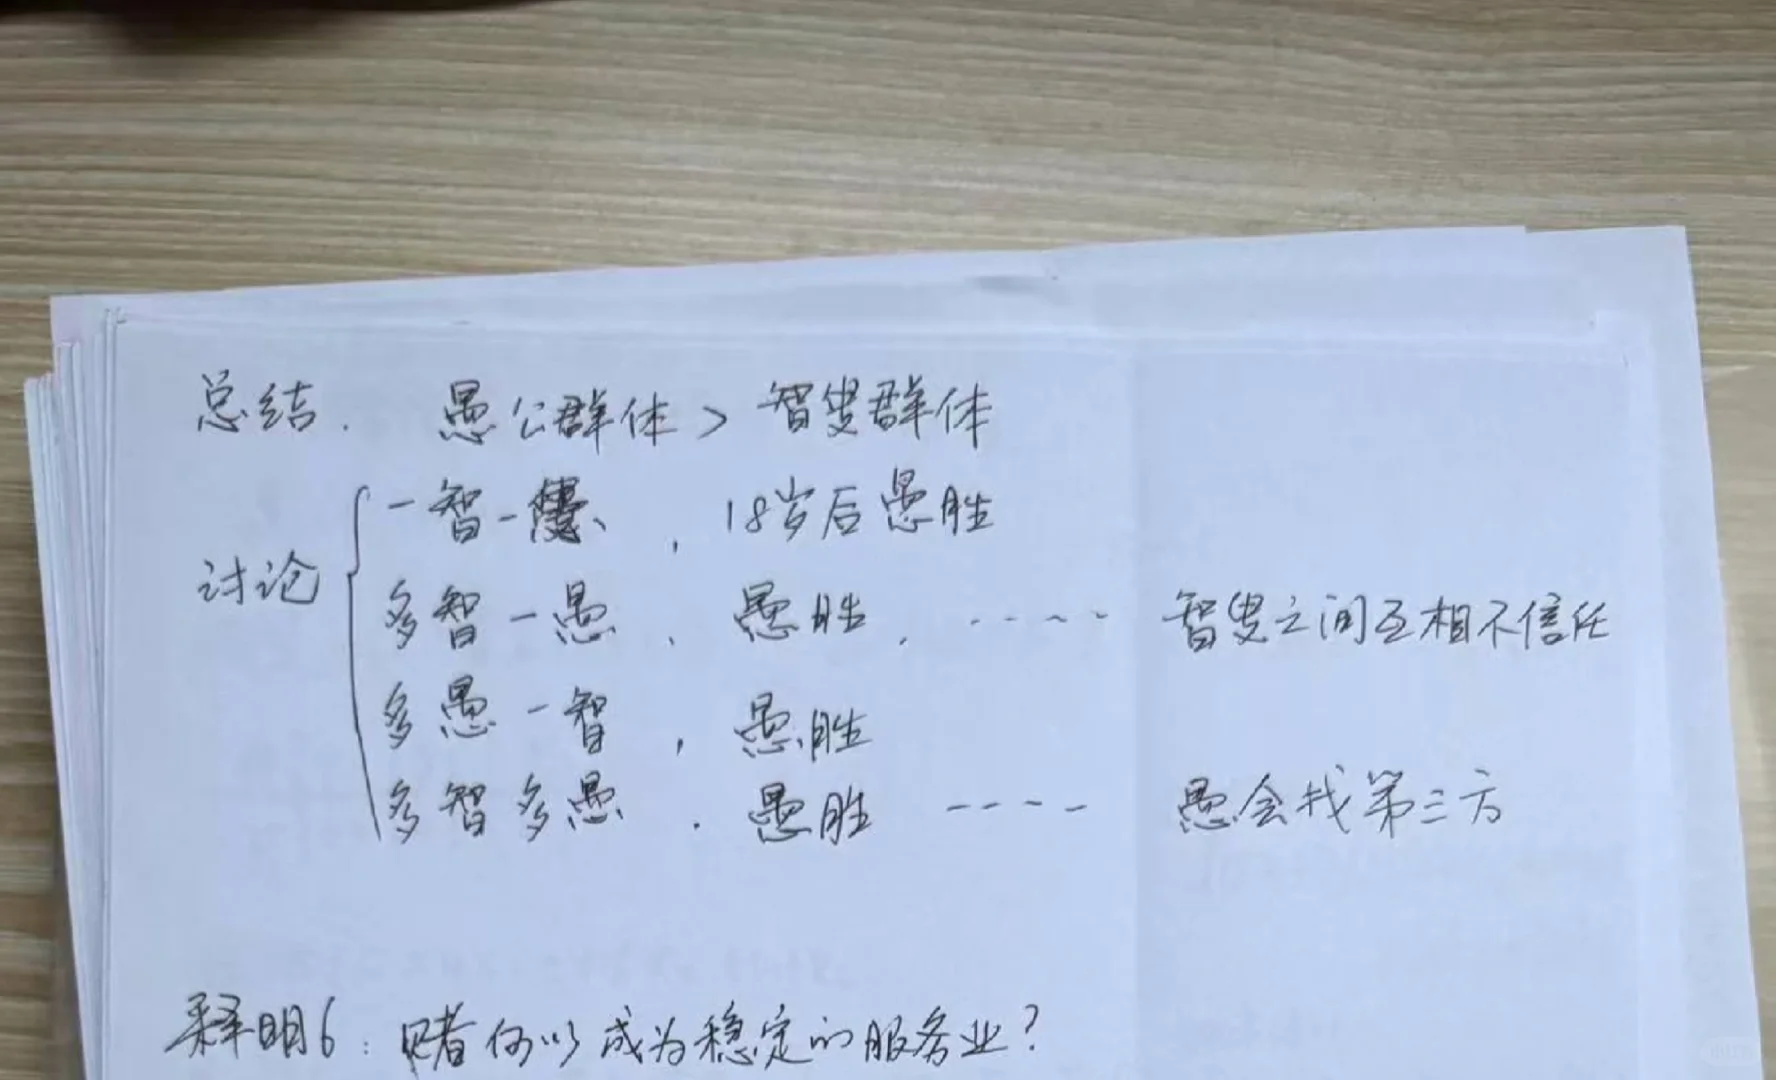 总结. 愚公群体 > 智叟群体
讨论
一智一愚, 18岁后愚胜
多智一愚, 愚胜, ---- 智叟之间互相不信任
多愚一智, 愚胜
多智多愚. 愚胜 ---- 愚会找第三方
释明6: 赌何以成为稳定的服务业?